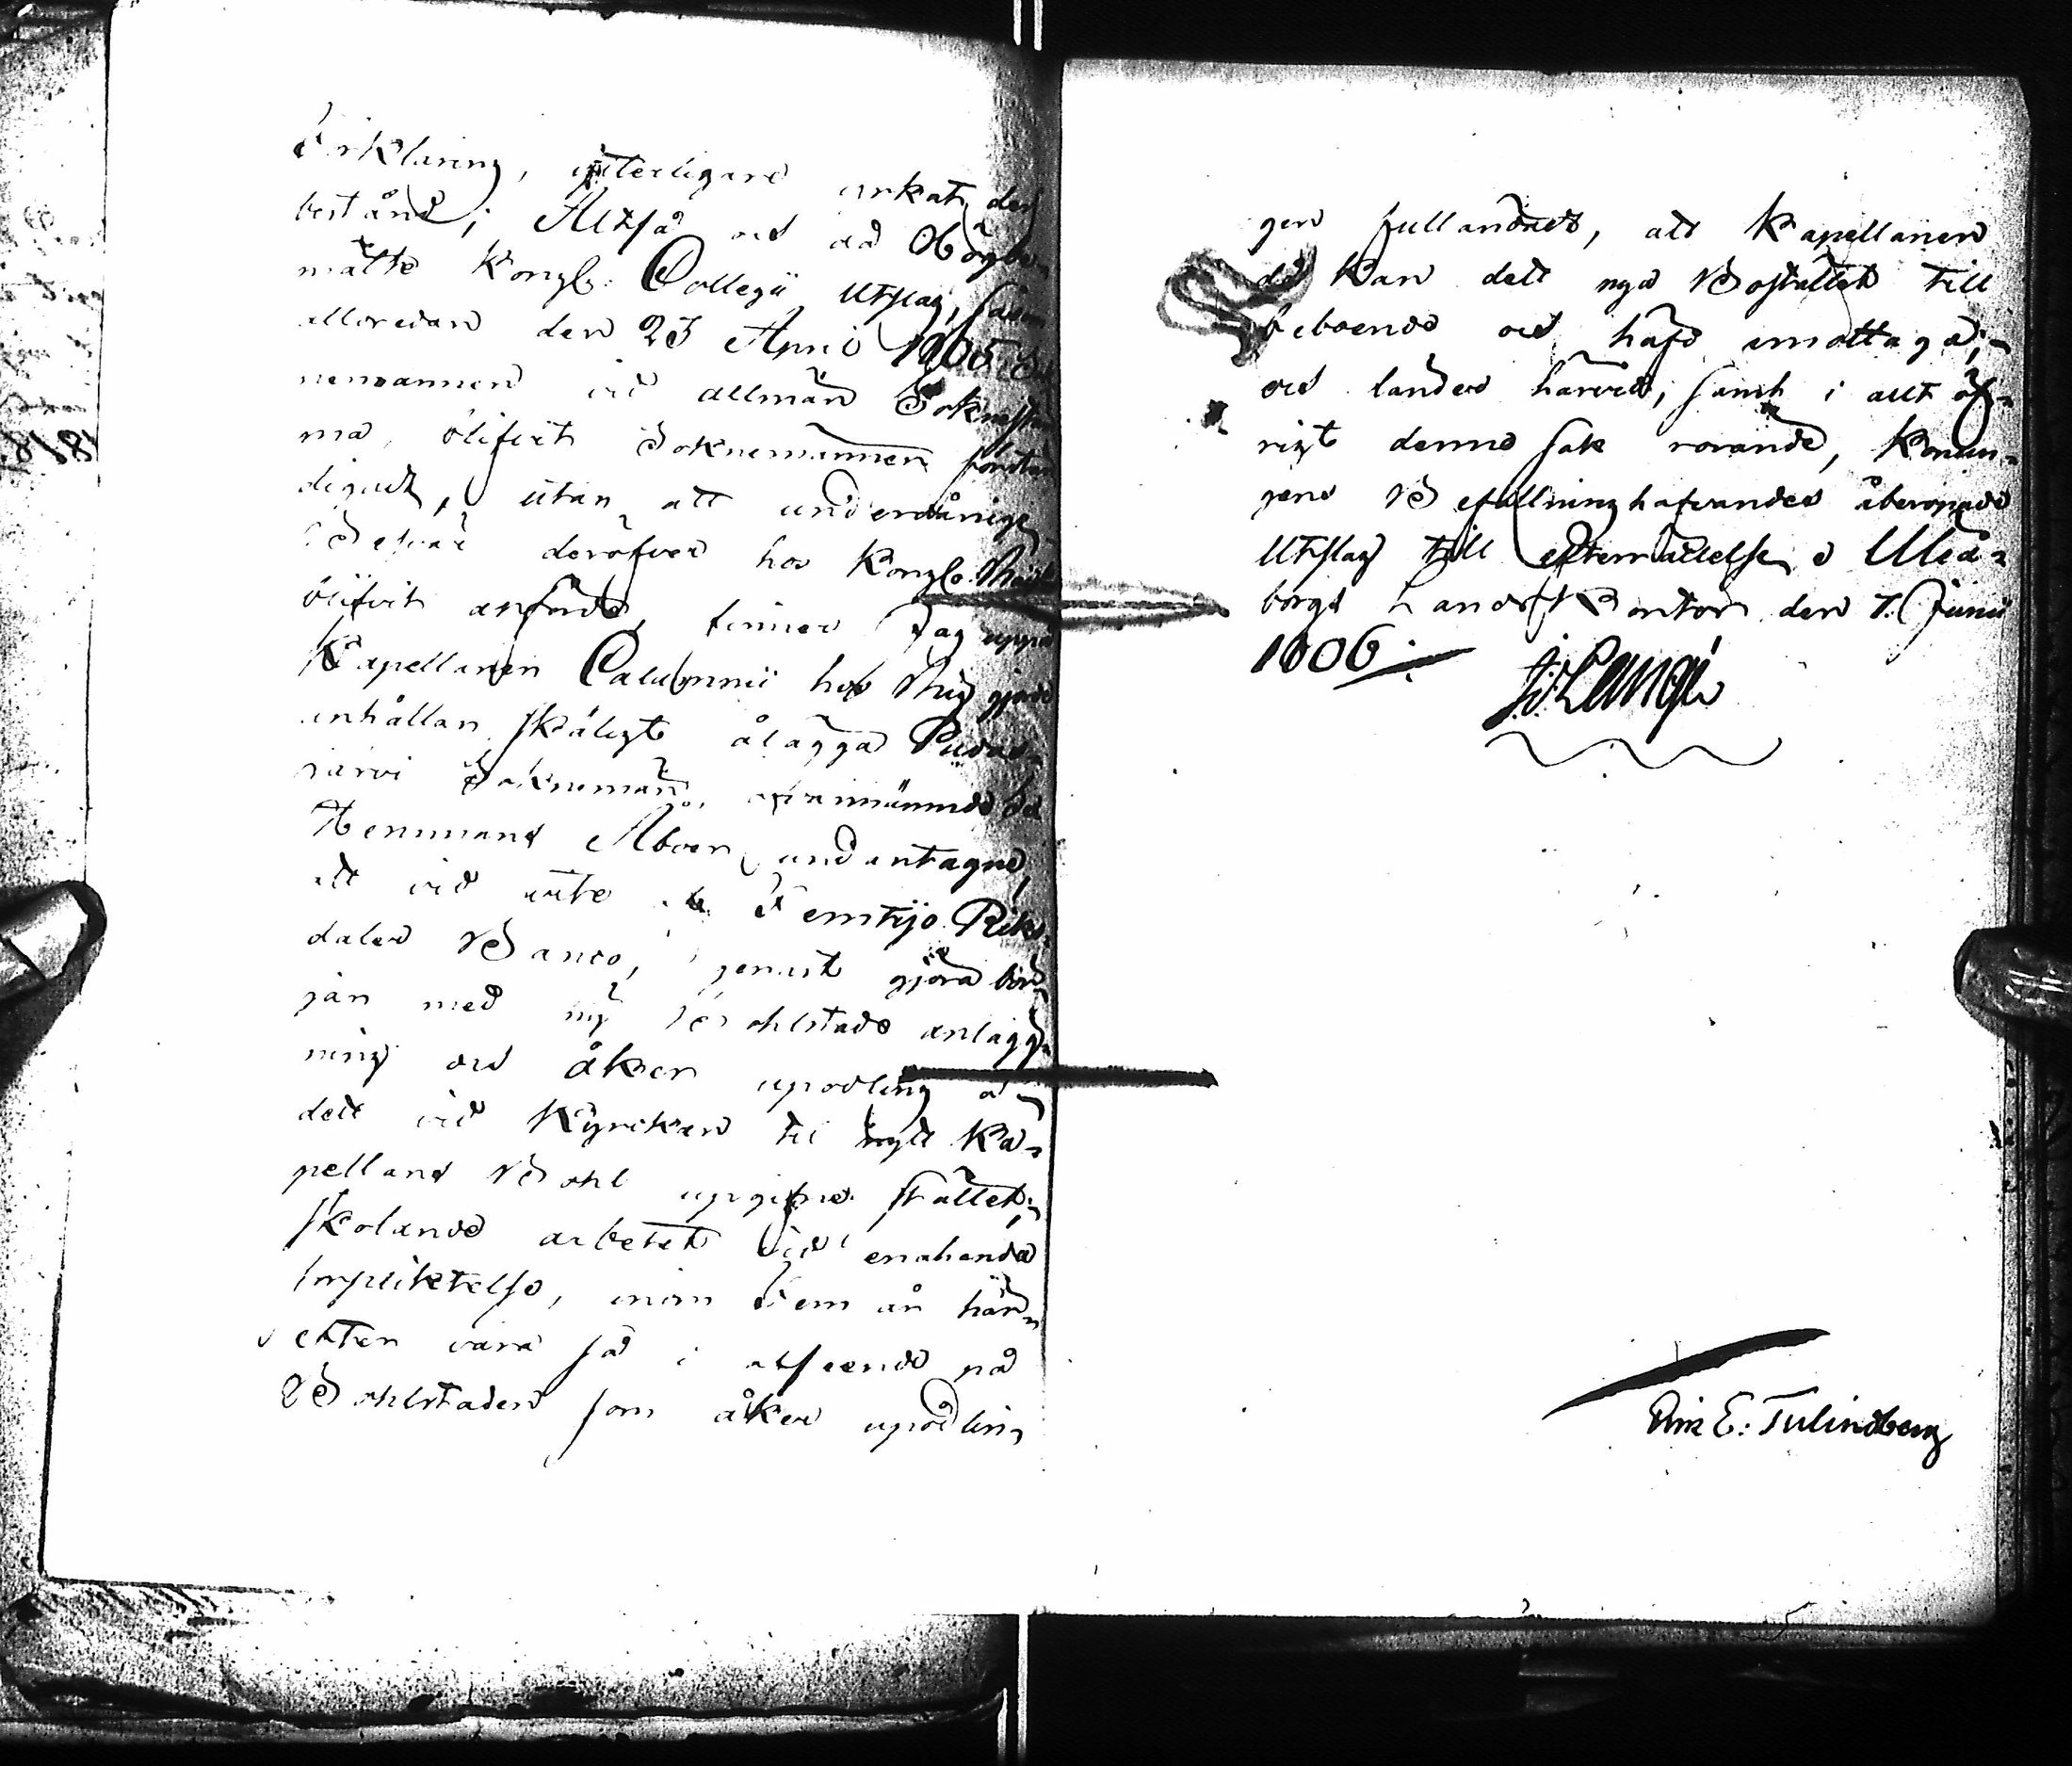 Förklaring, ytterligare yrkat des
bestånd; Altså och då Högbe-
mälte Kongl. Collegii Utslag, såsom
alloredan den 23 April 1805 Sok
nemannen vid allmän Soknestäm
ma, blifvit Soknemännen förstän
digadt, utan att underdånige
Besvär deröfver hos Kongl. Maÿt
blifvit anförde, finner Jag uppå
Kapellanen Calamnii hos Mig gjorde
anhållan skäligt ålägga Pudas-
järvi Soknemän, ofvannämnde
Hemmans Åboer undantagne,
att vid vite af Femtijo Riks-
daler Banco, genast göra bör-
jan med ny Bohlstads anlägg-
ning och åker upodling å
dett vid Kyrckan till nytt Ka-
pellans Bohl upgifne stället;
skolande arbetet vid enahanda
förpliktelse, inom Fem år här-
efter vara så i afseende på
Bohlstaden som åker upodlin-
gen fulländadt, att Kapellanen
då kan dett nya Bostället till
beboende och häfd emottaga;
och länder härvid, samt i allt öf-
rigt denne sak rörande, Konun-
gens Befallningshafvandes åberopade
Utslag till efterrättelse. Uleå-
borgs Lands Kontor den 7. Junii
1806.
J. Lange
Dirik E: Tulindberg